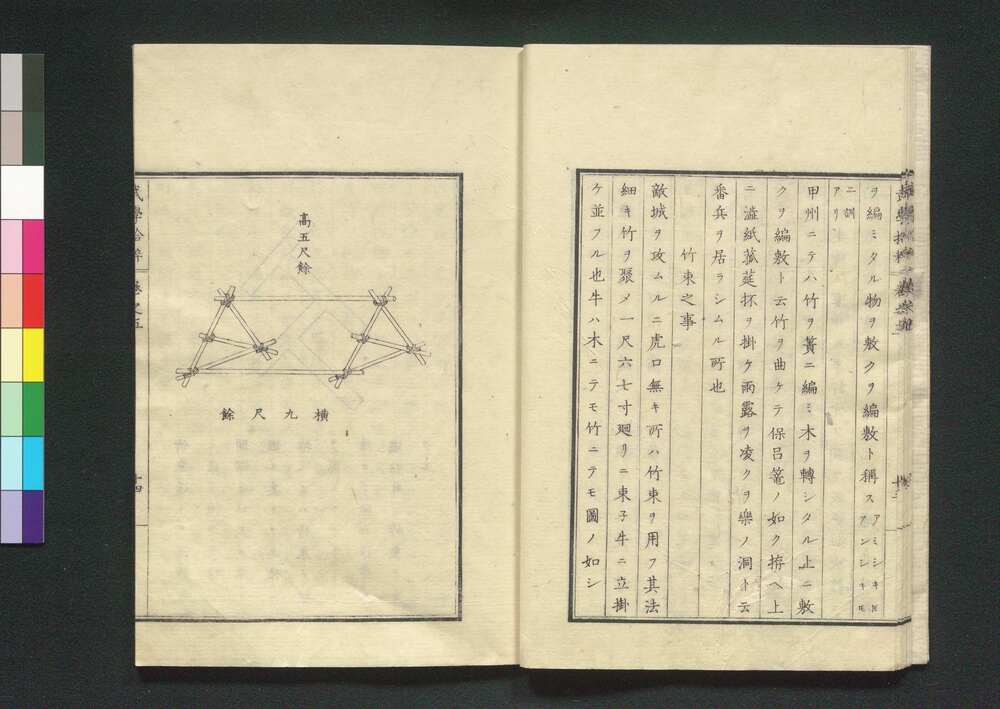 ヲ編ミタル物ヲ敷クヲ編敷ト稱スアミシキ
アンシキモ
ニ訓
アリ
甲州ニテハ竹ヲ簀ニ編ミ木ヲ轉シタル上ニ敷
クヲ編敷ト云竹ヲ曲ケテ保呂篭ノ如ク拵ヘ上
ニ澁紙菰莚抔ヲ掛ケ雨露ヲ凌クヲ樂ノ洞ト云
番兵ヲ居ラシムル所也
竹束之事
敵城ヲ攻ムルニ虎口無キ所ハ竹束ヲ用フ其法
細キ竹ヲ聚メ一尺六七寸廻リニ束子牛ニ立掛
ケ並フル也牛ハ木ニテモ竹ニテモ圖ノ如シ
高五尺餘
横九尺餘
十四